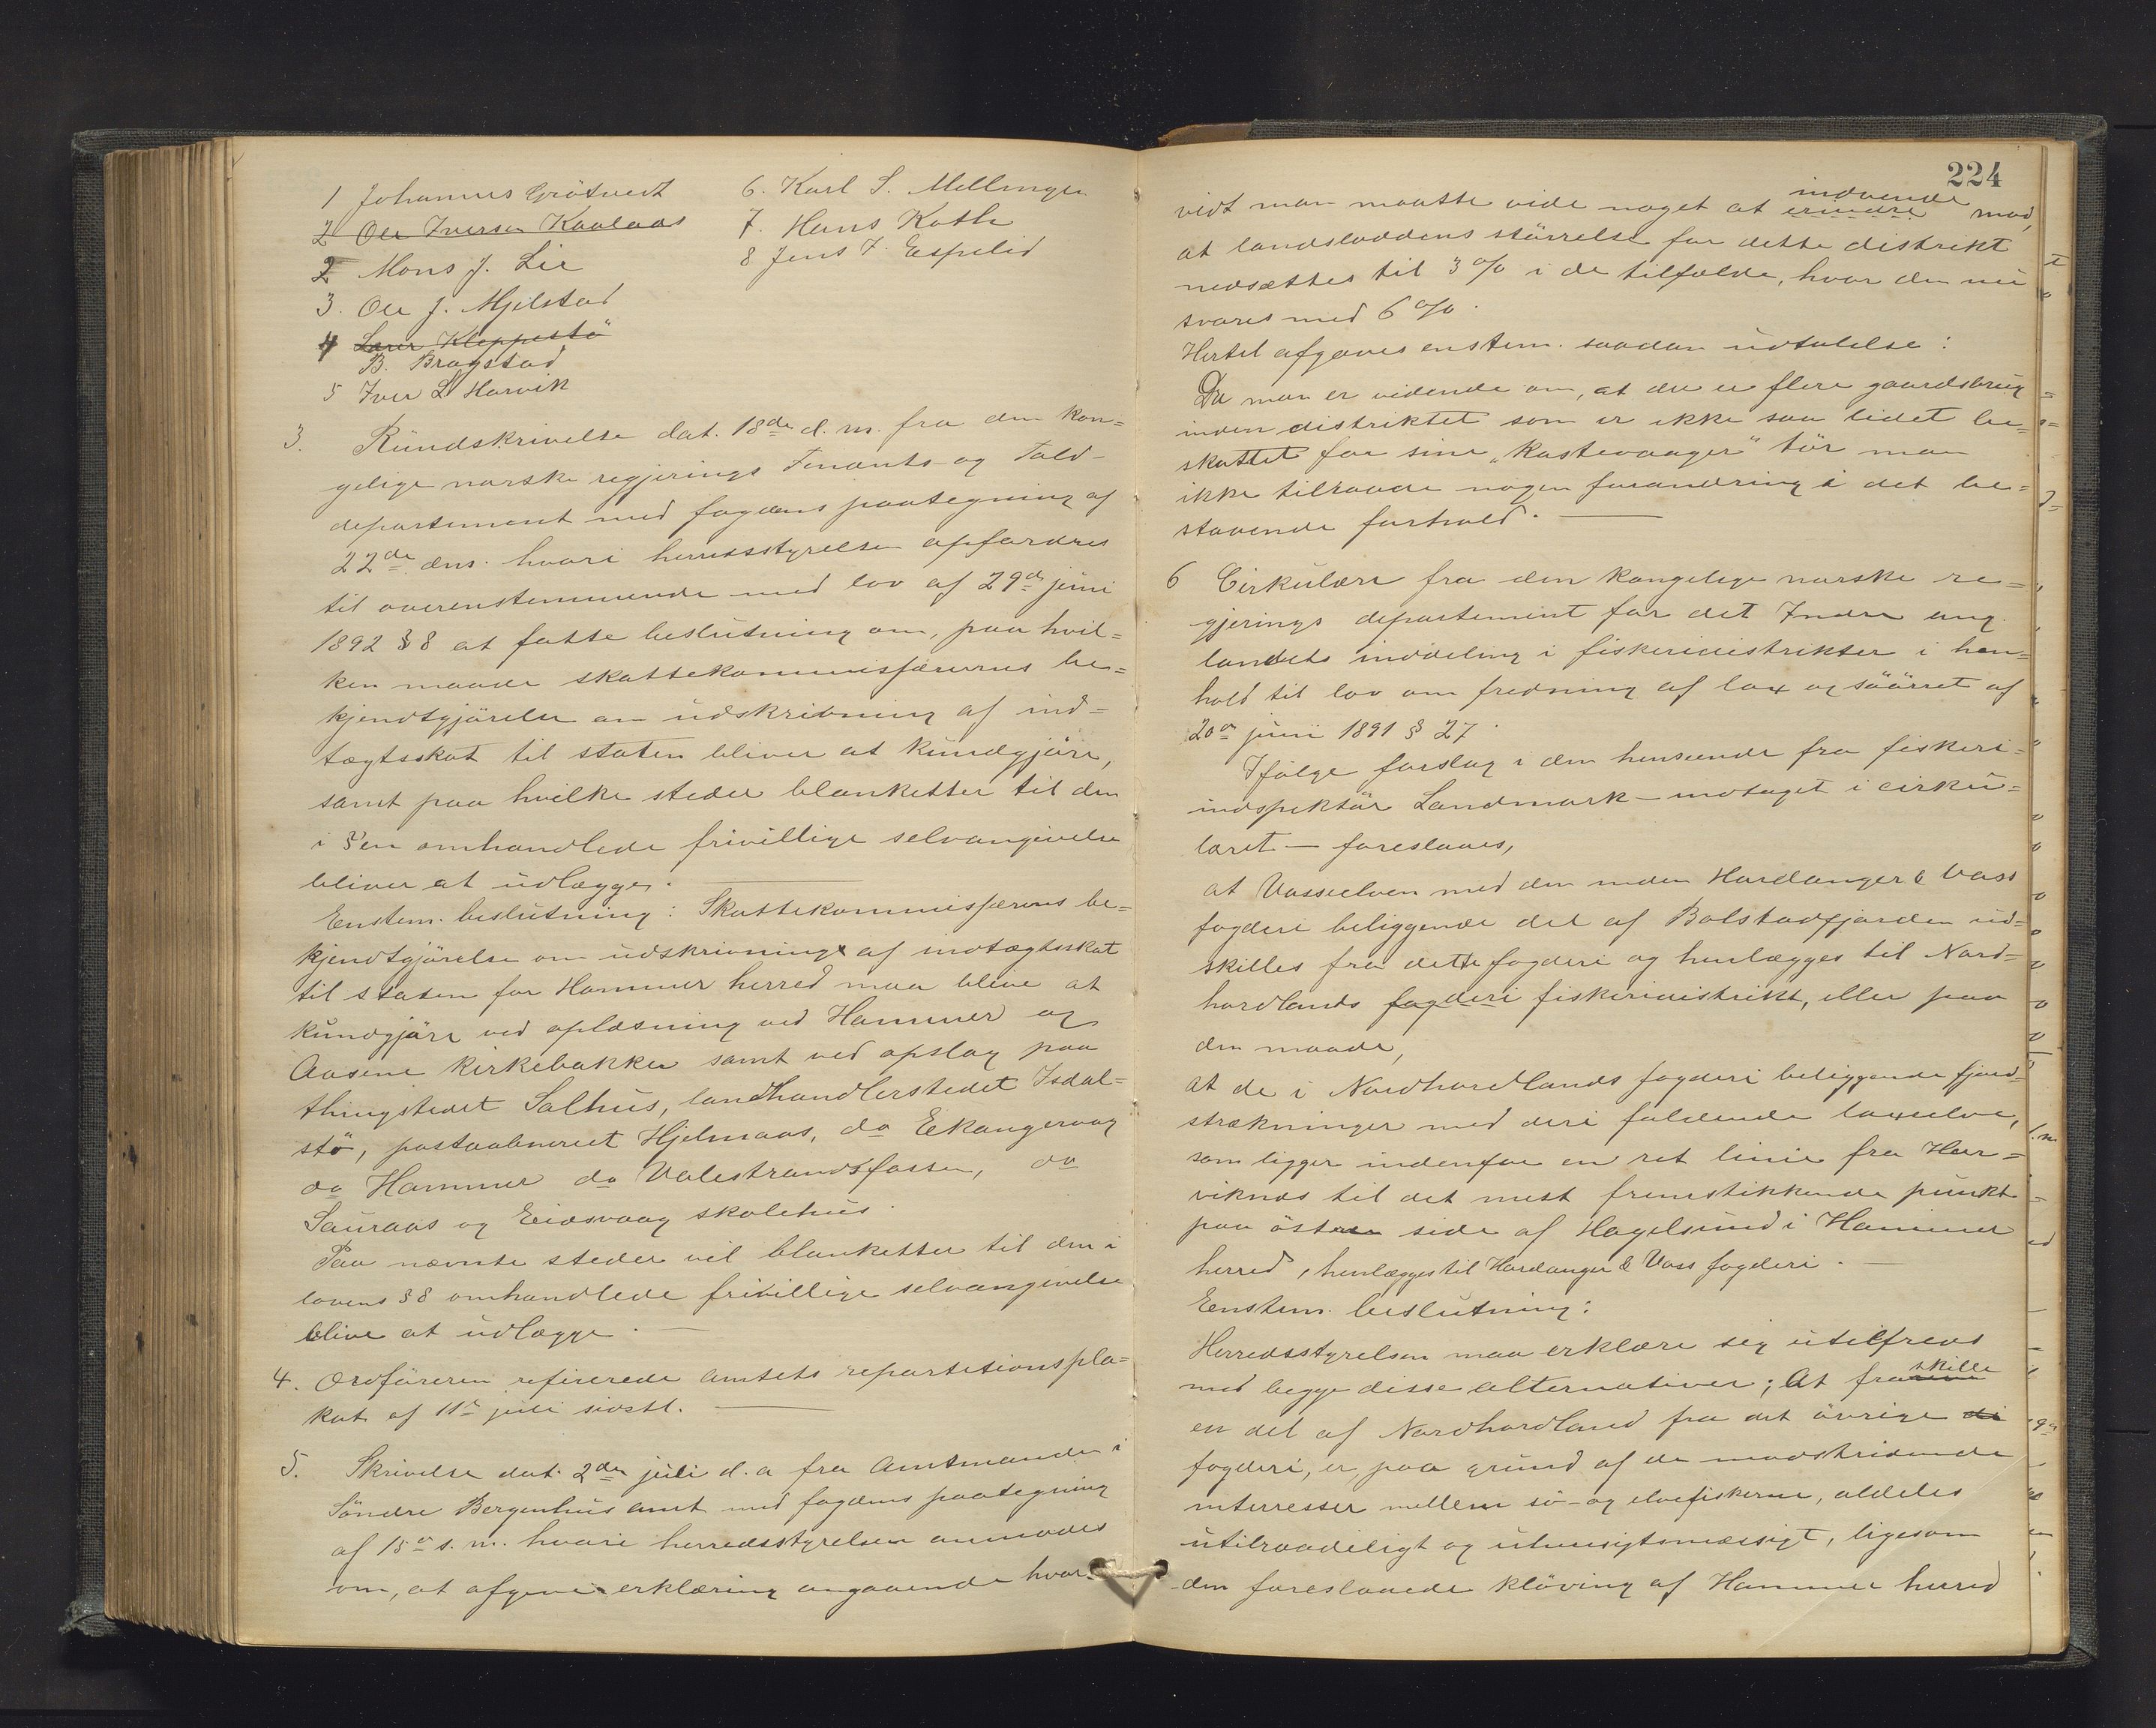 1 Johannes Grötvedt
2 Ole Iversen Kaalaas
2 Mons J. Lie
3. Ole J. Mjelstad
4 Larer Kleppestö
B. Bragstad
5 Iver L Harvik
6. Karl S. Mellingen
7. Hans Kathe
8 Jens T. Espelid
3. Rundskrivelse dat. 18de d. m. fra den kon=
gelige norske regjerings Finants- og Told-
departement med fogdens paategning af
22de dns. hvori herredsstyrelsen opfordres
til overenstemmende med lov af 29de juni
1892 § 8 at fatte beslutning om, paa hvil=
ken maade skattekommisjærernes be=
kjendtgjörelse om udskrivning af ind=
tægtsskat til staten bliver at kundgjöre,
samt paa hvilke steder blanketter til den
i §'en omhandlede frivillige selvangivelse
bliver at udlægge.
Enstem. beslutning: Skattekommisjærens be=
kjendtgjörelse om udskrivning af indtægtsskat
til staten for Hammer herred maa blive at
kundgjöre ved oplæsning ved Hammer og
Aasene kirkebakker samt ved opslag paa
thingstedet Salhus, landhandlerstedet Isdal=
stö, postaabneriet Hjelmaas, do Eekangervaag
do Hammer do Valestrandsfossen, do
Sauraas og Eidsvaag skolehus.
Paa nævnte steder vil blanketter til den i
lovens § 8 omhandlede frivillige selvangivelse
blive at udlægge.
4. Ordföreren refererede Amtets repartitionspla=
kat af 11te juli sidstl.
5. Skrivelse dat. 2den juli d. a fra Amtmanden i
Söndre Bergenhus amt med fogdens paategning
af 15de s. m. hvori herredsstyrelsen anmodes
om, at afgive erklæring angaaende hvor=
224
indvende
vidt man maatte vide noget at erindre mod,
at landsloddens störrelse for dette distrikt
nedsættes til 3 % i de tilfælde, hvor den nu
svares med 6 %.
Hertil afgaves enstem. saadan udtalelse:
Da man er vidende om, at der er flere gaardsbrug
inden distriktet som er ikke saa lidet be=
skattet for sine "kastevaager" tör man
ikke tilraade nogen forandring i det be=
staaende forhold.
6 Cirkulære fra den kongelige norske re=
gjerings departement for det Indre ang.
landets inddeling i fiskeridistrikter i hen=
hold til lov om fredning af lax og söörret af
20de juni 1891 § 27.
Ifölge forslag i den henseende fra fiskeri=
indspektör Landmark – indtaget i cirku=
læret – foreslaaes,
at Vosseelven med den inden Hardanger & Voss
fogderi beliggende del af Bolstadfjorden ud=
skilles fra dette fogderi og henlægges til Nord=
hordlands fogderi fiskeridistrikt, eller paa
den maade,
at de i Nordhordlands fogderi beliggende fjord=
strækninger med deri faldende laxeelve,
som ligger indenfor en ret linie fra Her=
viknæs til det mest fremstikkende punkt
paa östre side af Hagelsund i Hammer
herred, henlægges til Hardanger & Voss fogderi.
Eenstem. beslutning:
Herredsstyrelsen maa erklære sig utilfreds
skille
med begge disse alternativer; At fra
en del af Nordhordland fra det övrige di
fogderi, er, paa grund af de modstridende
interresser mellem sö- og elvefiskerne, aldeles
utilraadeligt og uhensigtsmæssigt, ligesom
den foreslaaede klöving af Hammer herred